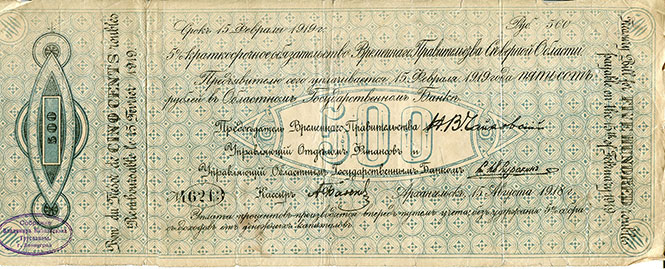 Срокъ 15 Февраля 1919 г. Руб. 500
5% краткосрочное обязательство Временнаго Правительства Сѣверной Области
Предъявителю сего уплачивается 15 Февраля 1919 года пятьсотъ
рублей въ Областномъ Государственномъ Банкѣ
Председатель Временнаго Правительства Н.В. Чайковскiй
Управляющiй Отделомъ Финансовъ и
Управляющiй Областнымъ Государственнымъ Банкомъ
500
№ 46213 Кассиръ Архангельскъ, 15 Августа 1918 г.
Уплата процентовъ производится впередъ путемъ учета, безъ удержанiя 5% сбора
съ доходовъ отъ денежныхъ капиталовъ.
500
Bon du Trésor de CINQ CENTS roubles
Remboursable le 15 Février 1919.
Treasury Bill for FIVE HUNDRED roubles
payable on the 15 of February 1919
г. Ленинград